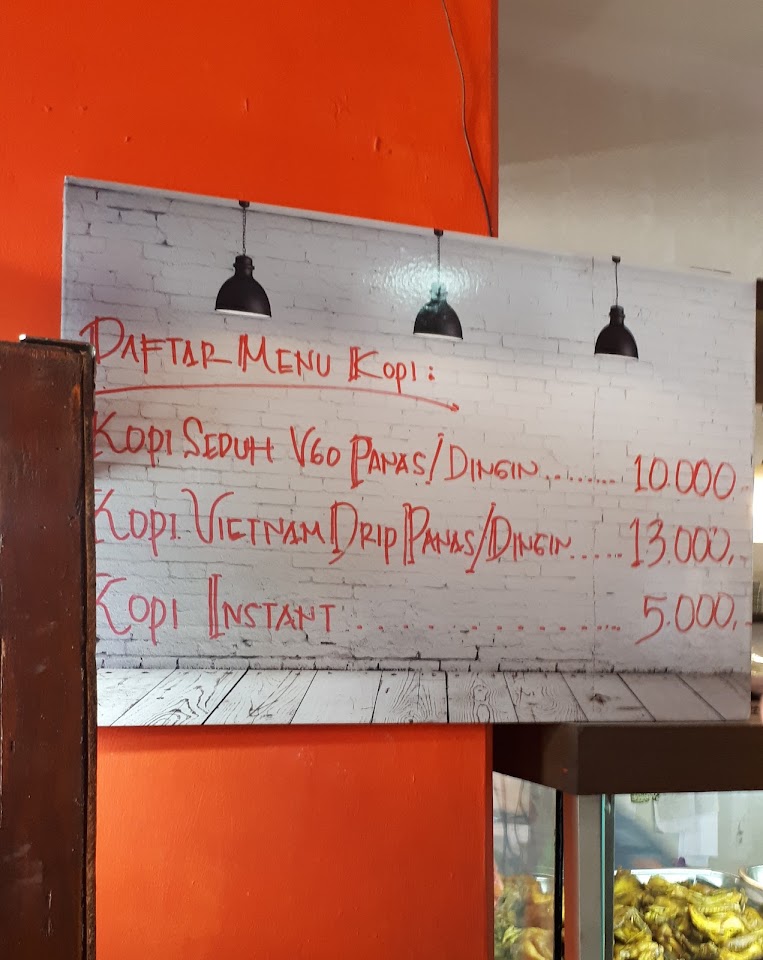 DAFTAR MENU KOPI :
KOPI SEDUH V60 PANAS/DINGIN ......... 10.000,-
KOPI VIETNAM DRIP PANAS/DINGIN ...... 13.000,-
KOPI INSTANT ................ 5.000,-